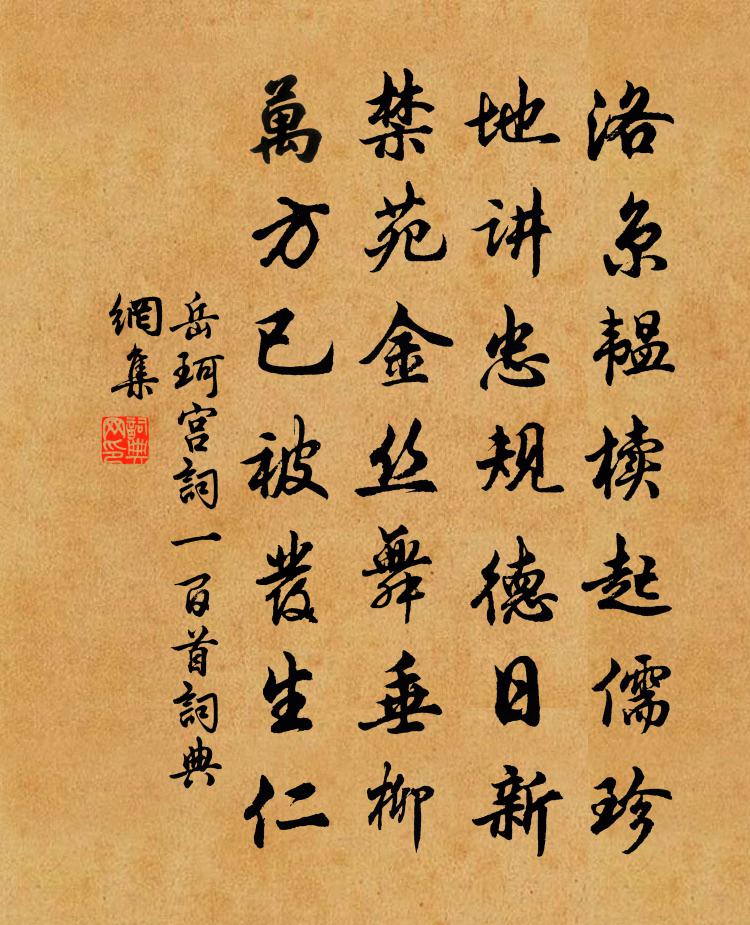 洛京韫椟起儒珍
地讲忠规德日新
禁苑金丝舞垂柳
萬方已被發生仁
岳珂宫詞一百首詞典
網集
詞典
网印